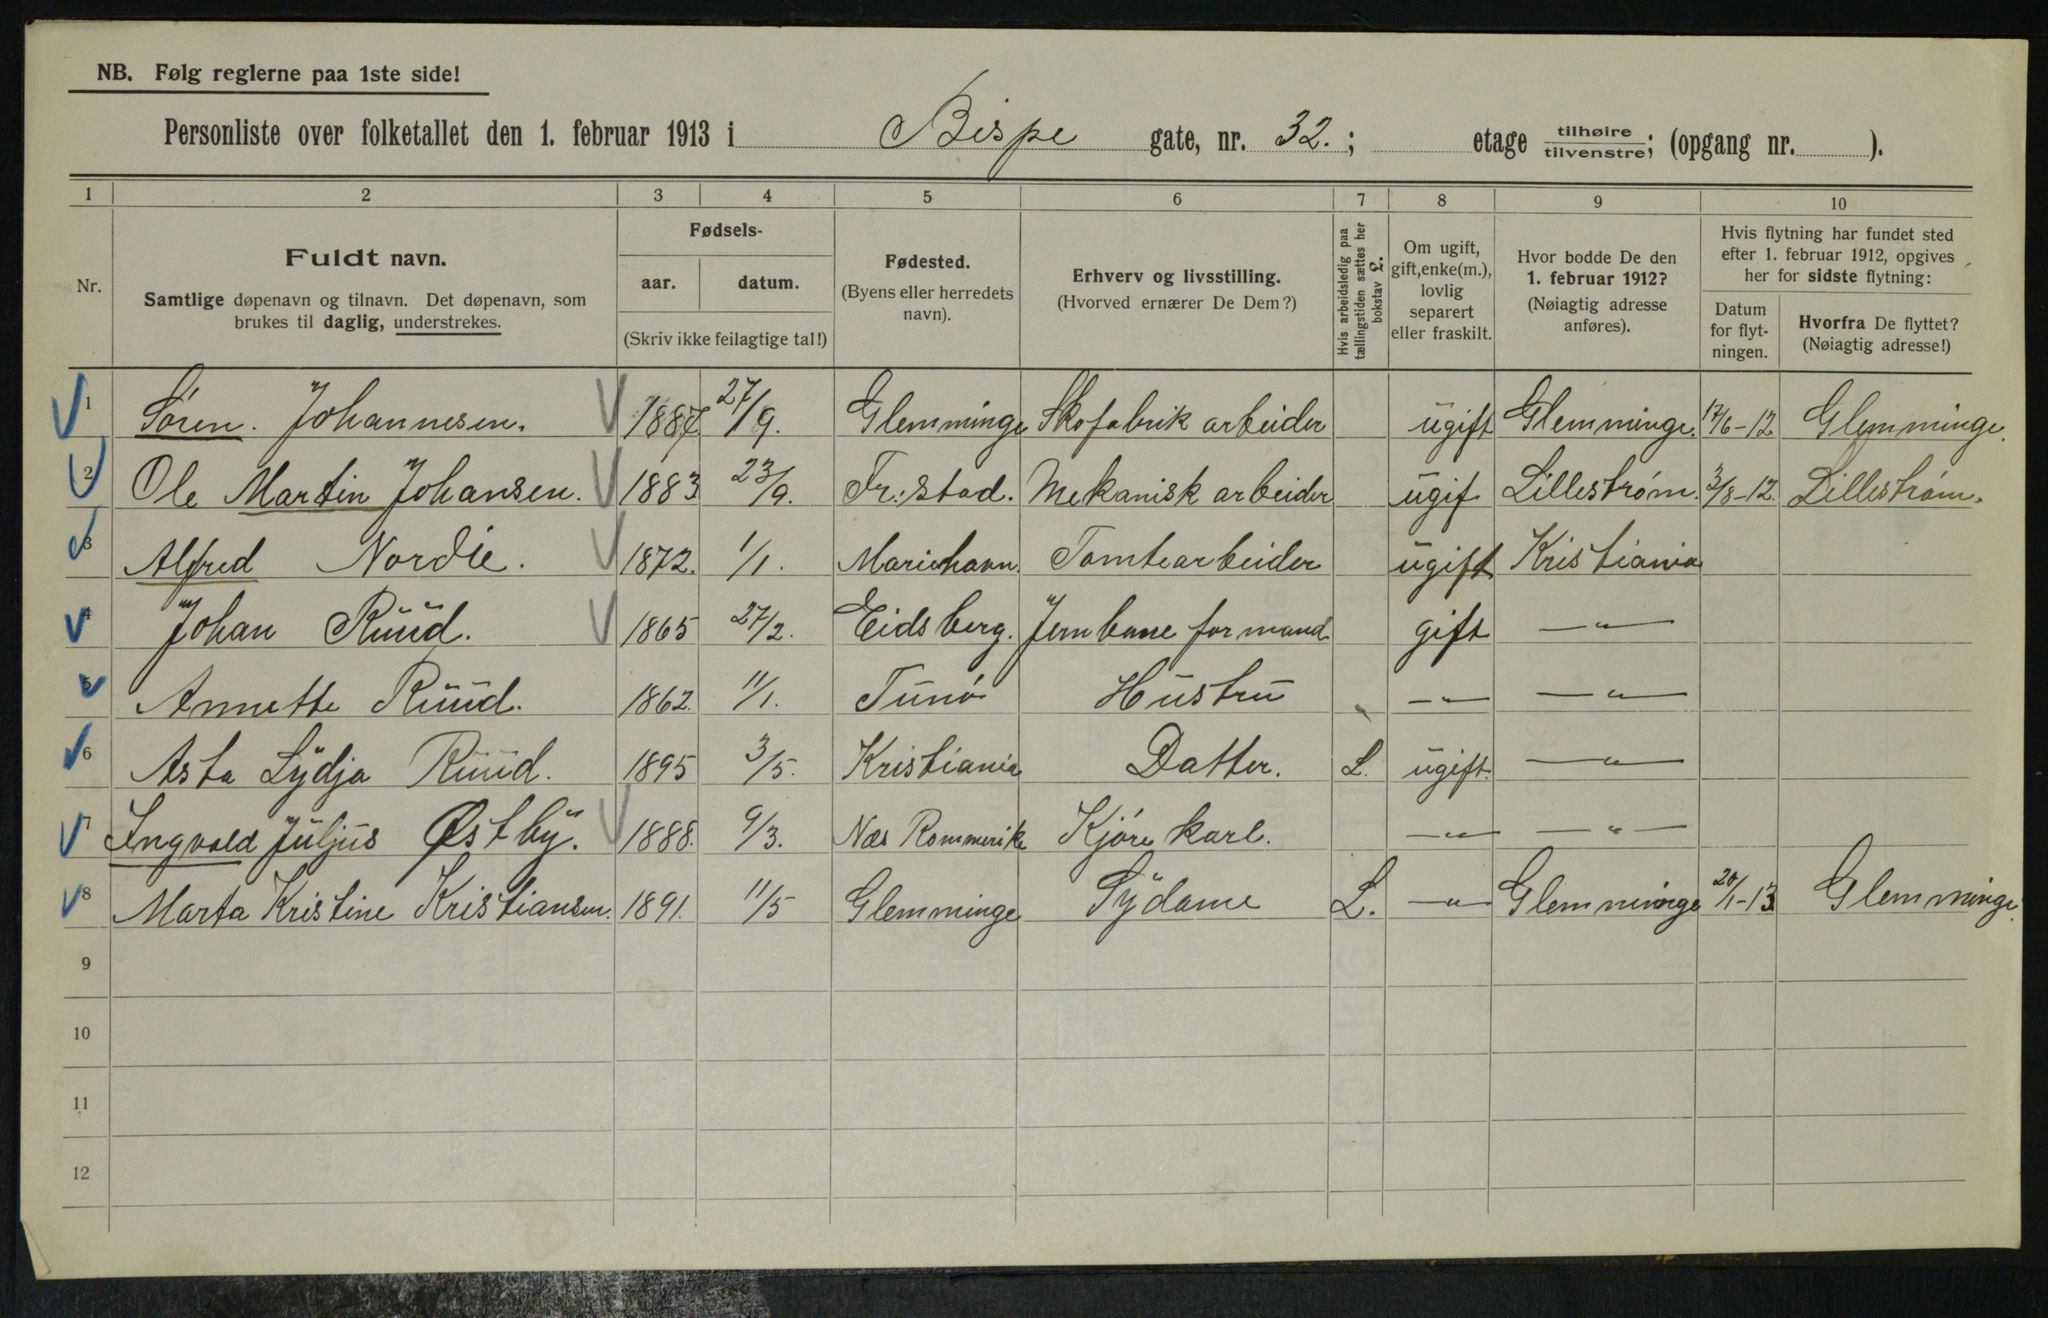 NB. Følg reglerne paa 1ste side!
Personliste over folketallet den 1. februar 1913 i Bispe gate, nr. 32.; etage tilhøire/tilvenstre; (opgang nr. ).
1 2 3 4 5 6 7 8 9 10
Nr.
Fuldt navn.
Samtlige døpenavn og tilnavn. Det døpenavn, som
brukes til daglig, understrekes.
Fødsels-
aar. datum.
(Skriv ikke feilagtige tal!)
Fødested.
(Byens eller herredets
navn).
Erhverv og livsstilling.
(Hvorved ernærer De Dem?)
Hvis arbeidsledig paa
tællingstiden sættes her
bokstav L.
Om ugift,
gift, enke(m.),
lovlig
separert
eller fraskilt.
Hvor bodde De den
1. februar 1912?
(Nøiagtig adresse
anføres).
Hvis flytning har fundet sted
efter 1. februar 1912, opgives
her for sidste flytning:
Datum
for flyt-
ningen.
Hvorfra De flyttet?
(Nøiagtig adresse!)
1 Søren. Johannesen. 27/9. Glemminge Skofabrik arbeider ugift Glemminge. 17/6-12. Glemminge.
2 Ole Martin Johansen. 1883 23/9. Fr:stad. Mekanisk arbeider ugif Lillestrøm. 3/8-12. Lillestrøm.
3 Alfred Nordie. 1872. 1/1. Mariehavn. Tomtearbeider ugift Kristiania
4 Johan Ruud. 1865 27/2. Eidsberg. Jernbane formand gift —"—
5 Annette Ruud. 1862. 11/1. Tunø Hustru —"— —"—
6 Asta Lydja Ruud. 1895 3/5. Kristiania Datter. L. ugift. —"—
7 Ingvald Juljus Østby. 1888. 9/3. Næs Rommerike Kjøre karl. —"— —"—
8 Marta Kristine Kristiansen. 1891. 11/5 Glemminge Sydame L. —"— Glemminge 20/1-13 Glemminge.
9
10
11
12